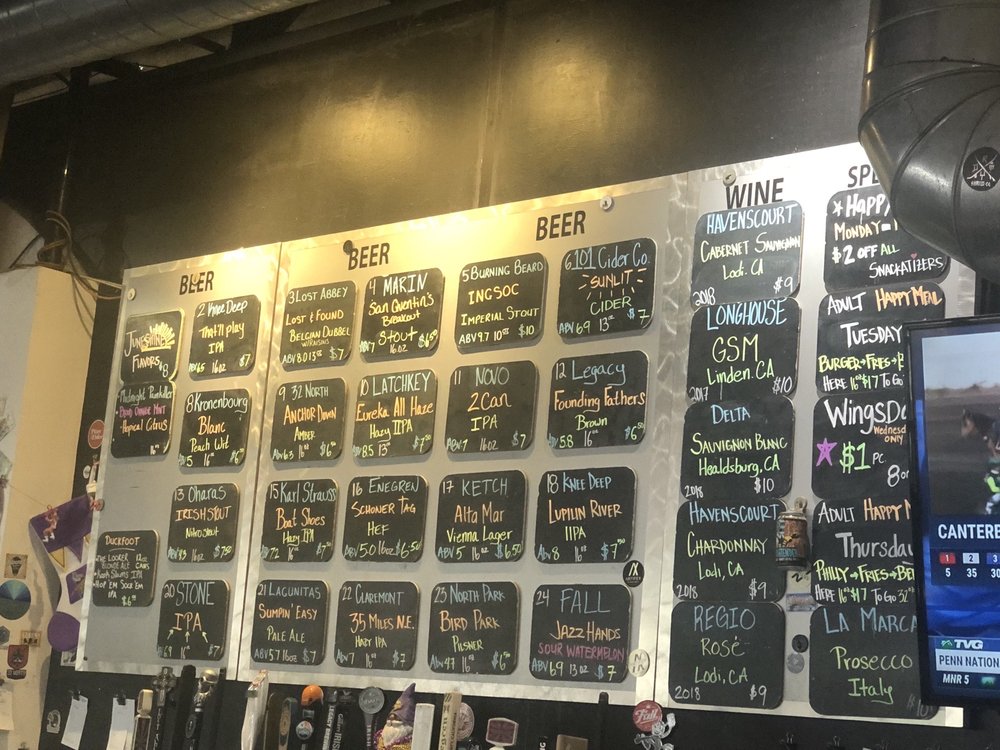 BEER
JUNESHINE
FLAVORS $8
Midnight Painkiller
Blood Orange Mint
Tropical Citrus
DUCKFOOT
THE LOOKER
BLONDE ALE
IPA
$6.50
2 Knee Deep
That'll play
IPA
ABV 6.5 $7
8 Kronenbourg
Blanc
Peach Wht
ABV 5 16oz
13 Oharas
IRISH STOUT
Nitro Stout
16oz $7.50
20 STONE
IPA
ABV 6.9 16 $7
BEER
3 LOST ABBEY
LOST & FOUND
BELGIAN DUBBEL
W/RAISINS
ABV 8.0 13oz $7
4 MARIN
San Quentin's
Breakout
STOUT
ABV 7 16oz $6.50
9 32 North
ANCHOR DOWN
AMBER
ABV 6.3 16oz $6.50
10 LATCHKEY
Eureka All Haze
Hazy IPA
ABV 8.5 13oz $7.50
15 Karl Strauss
Boat Shoes
Hazy IPA
ABV 7.2 16oz $7.50
16 ENEGREN
SCHONER TAG
HEF
ABV 5.0 16oz $6.50
21 LAGUNITAS
SUMPIN' EASY
PALE ALE
ABV 5.7 16oz $7
22 CLAREMONT
35 MILES N.E.
HAZY IPA
ABV 7 16oz $7
BEER
5 BURNING BEARD
INGSOC
IMPERIAL STOUT
ABV 9.7 10oz $10
6 101 Cider Co.
SUNLIT
CIDER
ABV 6.9 13oz $7
11 NOVO
2 Can
IPA
ABV 7 16oz $7
12 Legacy
Founding Fathers
Brown
ABV 5.8 16oz $6.50
17 KETCH
Alta Mar
Vienna Lager
ABV 5 16oz $6.50
18 KNEE DEEP
LUPILIN RIVER
IIPA
Abv 8 16oz $7.50
23 NORTH PARK
BIRD PARK
PILSNER
ABV 4.7 16oz $6.50
24 FALL
JAZZ HANDS
SOUR WATERMELON
ABV 6.9 13oz $7
WINE
HAVENSCOURT
CABERNET SAUVIGNON
Lodi, CA
2018 $9
LONGHOUSE
GSM
Linden, CA
2017 $10
DELTA
SAUVIGNON BLANC
Healdsburg, CA
2018 $10
HAVENSCOURT
CHARDONNAY
Lodi, CA
2018 $9
REGIO
Rosé
Lodi, CA
2018 $9
SPE
*HAPPY
MONDAY-
$2 OFF ALL
SNACKATIZERS
ADULT HAPPY MEAL
TUESDAY
BURGER+FRIES+
HERE 16oz $17 TO GO
WINGSDA
Wednesday
ONLY
$1 PC.
8 or
ADULT HAPPY M
Thursday
PHILLY+FRIES+BEE
HERE 16oz $17 TO GO 32oz
LA MARCA
Prosecco
Italy
$10
CANTERB
1 2 3
5 35 30
TVG
PENN NATION
MNR 5